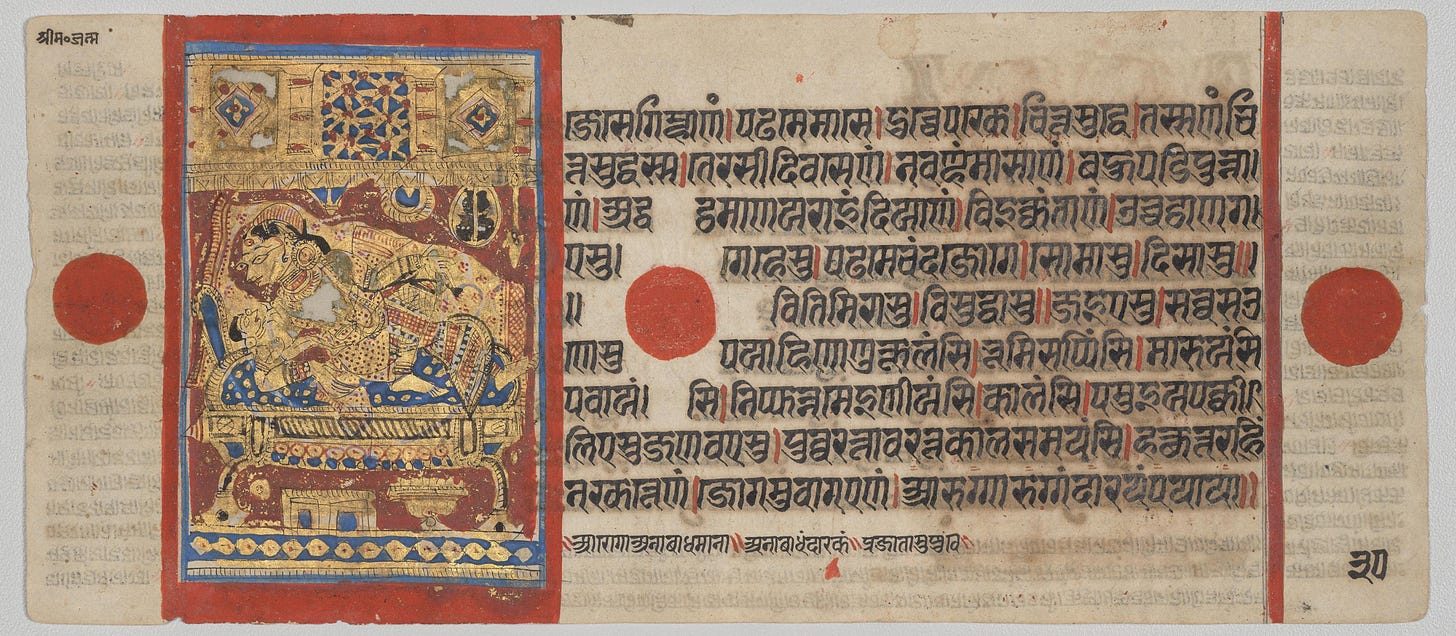 श्रीम॰जन्म
जेसेगिम्हाणं।पढमेमासे।दुच्चेपक्खे।चित्तसुद्धे।तस्सणंचि
त्तसुद्धस्स।तेरसीदिवसेणं।नवण्हंमासाणं।बहुपडिपुन्ना।
णं।अद्ध ट्ठमाणयराइंदियाणं।विइक्कंताणं।उच्चट्ठाणग।
एसु। गहेसु।पढमेचंदजोगे।सोमासु।दिसासु॥
॥ वितिमिरासु।विसुद्धासु॥जइएसु।सव्वसउ
णेसु पयाहिणाणुकूलंसि।भूमिसप्पिंसि।मारुयंसि
पवायं। सि।निप्फन्नमेइणीयंसि।कालंसि।पमुइयपक्की।
लिएसुजणवएसु।पुव्वरत्तावरत्तकालसमयंसि।हत्थुत्तराहिं
नरकत्तेणं।जोगमुवागएणं।आरुग्गारुग्गंदारयंपयाया॥
॥आरोगाअनाबाधमाता॥अनाबाधंदारकं॥प्रजातासुषुवे
३०